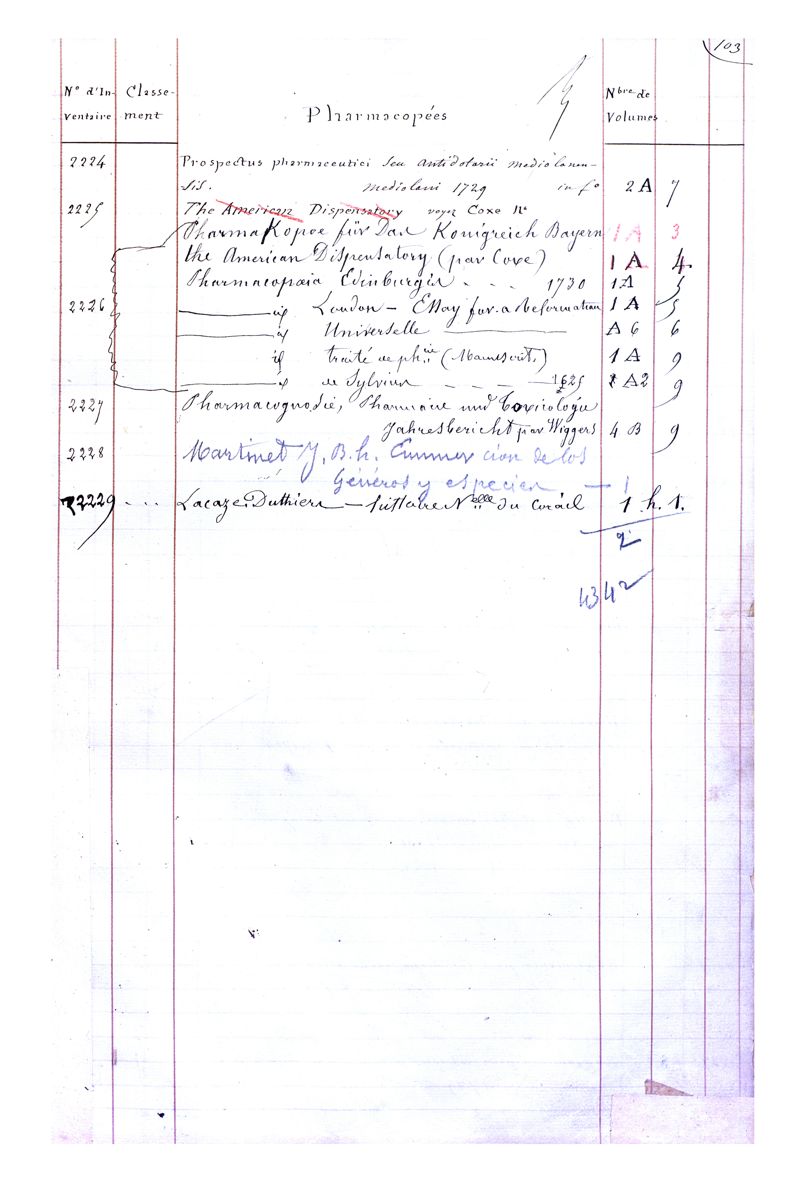 103
N° d'In- Classe- Nbre de
ventaire ment Pharmacopées Volumes
2224 Prospectus pharmaceutici seu antidotarii mediolanen-
sis. mediolani 1729 in f° 2 A 7
2225 The American Dispensatory voyez Coxe N°
Pharmakopoe für Das Königreich Bayern 1 A 3
the American Dispensatory (par Coxe) 1 A 4
Pharmacopœia Edinburgis . . . 1730 1 A 5
2226 London — Essay for a Reformation 1 A 5
Universelle A 6 6
traité de ph.ie (Manuscrit.) 1 A 9
de Sylvius — — — 1625 A2 9
2227 Pharmacognosie, Pharmacie und Toxicologie
Jahresbericht par Wiggers 4 B 9
2228 Martinet J. B. h. Enumer cion de los
Généros y especies — 1
2229 . . . Lacaze-Duthiers — histoire Nelle du Corail 1 h. 1.
2
4342